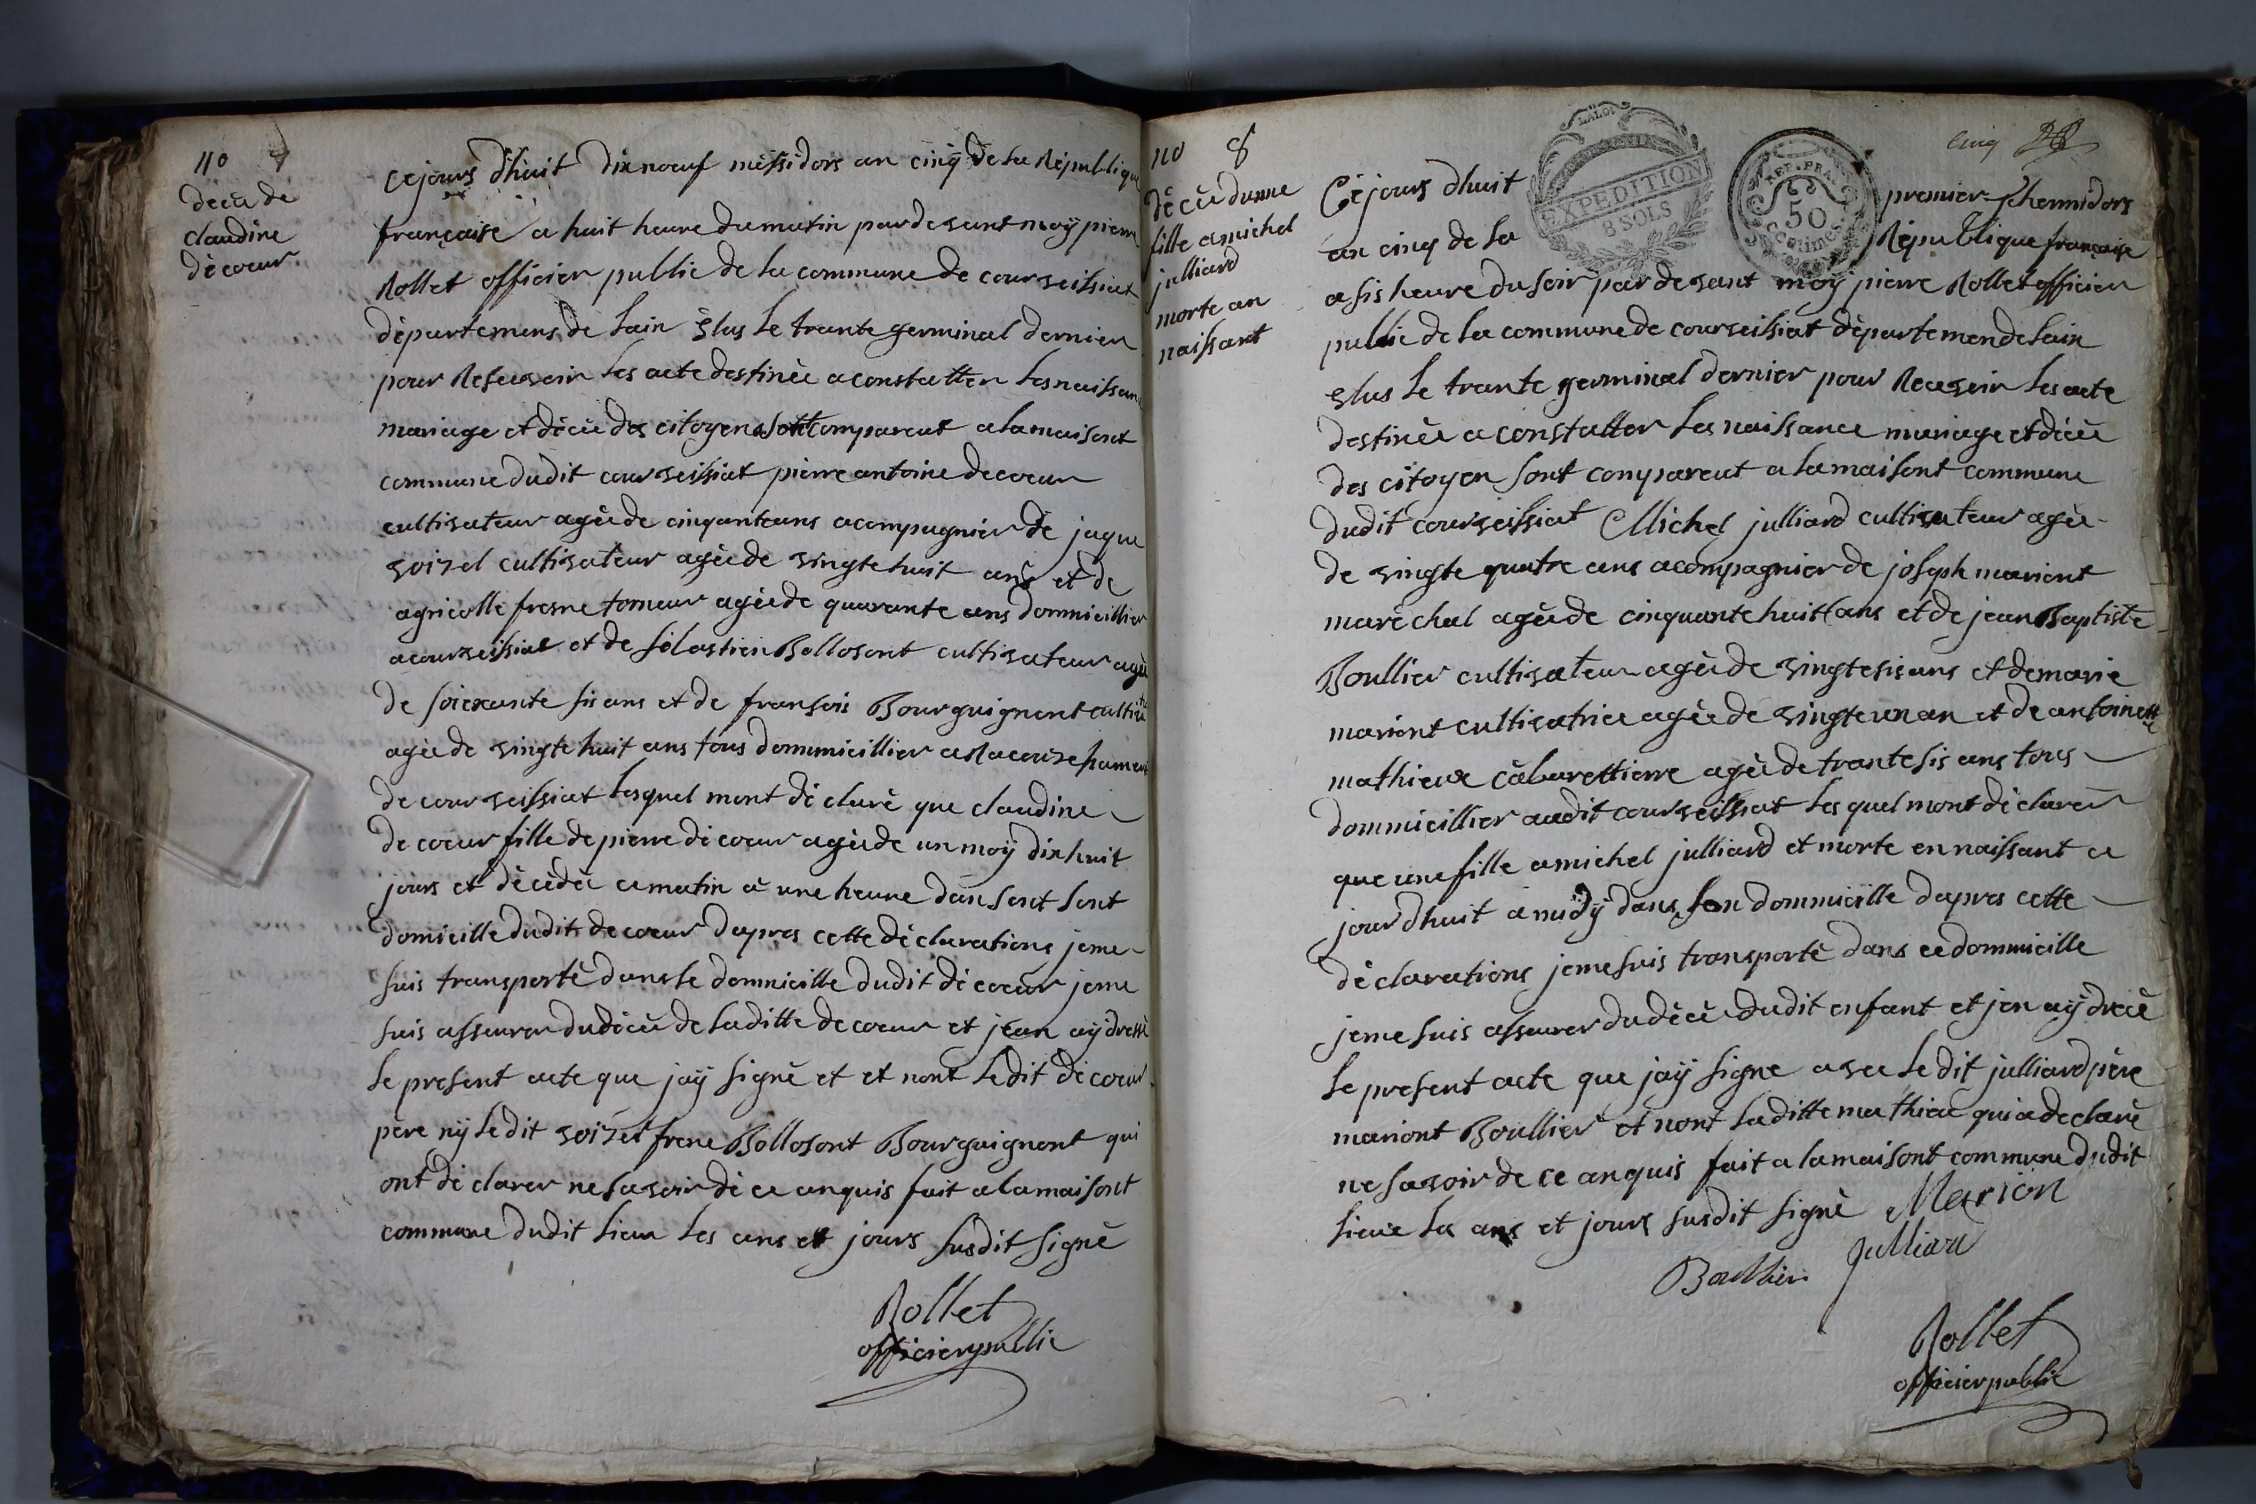 no 7
décé de
claudine
décoeur
cejours d'huit dix noeuf messidors an cinq de la Républiqu
française a huit heure du matin par devant moÿ pierre
Rollet officier public de la commune de courveissiat
départemens de lain Elus le trante germinal dernier
pour Resevoir les acte destinée a constatter les naissan
mariage et décée des citoyens sont compareut a la maisont
commune dudit courveissiat pierre antoine decoeur
cultivateur agée de cinquante ans acompagnier de jaque
voizel cultivateur agée de vingte huit ans et de
agricolle fresne torneur agée de quarante ans dommicillier
a courveissiat et de sébastien Bollosont cultivateur agée
de soiexante sis ans et de fransois Bourguignont cultiva
agée de vingte huit ans tous dommicillier a Racouze hameau
de courveissiat lesquel mont déclaré que claudine
de coeur fille de pierre décoeur agée de un moÿ dix huit
jours et décédée ce matin a une heure dan sont sont
domicille dudit decoeur dapres cette déclarations jeme
suis transporté dans le dommicille dudit décoeur jeme
suis asseurer du décé de laditte decoeur et jean aÿ dressé
le present acte que jaÿ signé et et nont ledit décoeur
pere nÿ ledit voizel frene Bollosont Bourguignont qui
ont déclarer ne savoir dé ce anquis fait a la maisont
commune dudit lieux les ans et jours susdit signé
Rollet
officier public
no 8
décée dunne
fille a michel
julliard
morte an
naissant
cinq
LA LOI
EXPEDITION
8 SOLS
REP. FRA.
50
Centimes
Céjours dhuit premier thermidors
an cinq de la République française
a sis heure du soir par devant moÿ pierre Rollet officier
public de la commune de courveissiat départemen de lain
Elus le trante germinal dernier pour Recevoir les acte
destinée a constatter les naissance mariage et décée
des citoyen sont conpareut a la maisont commune
dudit courveissiat Michel julliard cultivateur agée
de vingte quatre ans acompagnier de joseph marient
maréchal agée de cinquante huit ans et de jean Baptiste
Boullier cultivateur agée de vingte sis ans et de marie
mariont cultivatrice agée de vingte un an et de antoinette
mathieux cabarettierre agée de trante sis ans tous
dommicillier audit courveissiat lesquel mont déclarer
que une fille a michel julliard et morte en naissant ce
jour dhuit a midÿ dans son dommicille dapres cette
déclarations jeme suis transporté dans ce dommicille
jeme suis assurer du décée dudit enfant et jen aÿ drecé
le present acte que jaÿ signe avec ledit julliard père
mariont Boullier et nont laditte mathieu qui a declaré
ne savoir de ce anquis fait a la maisont commune dudit
lieue la ans et jours susdit signé Marion
Boullier Julliard
Rollet
officier public